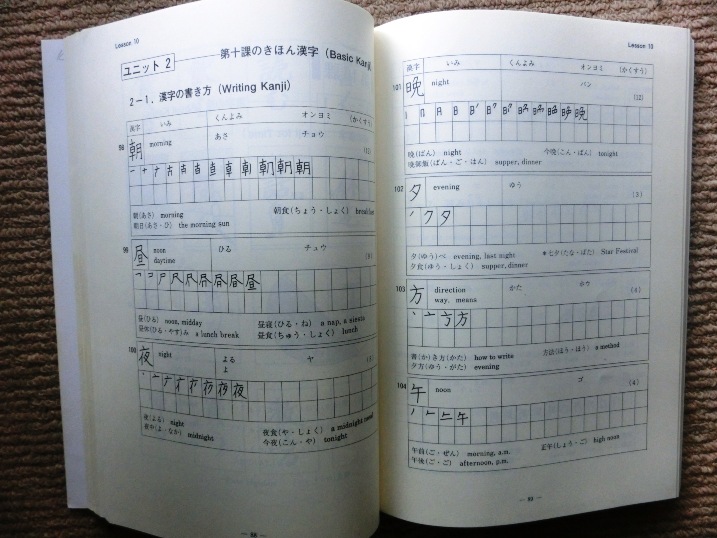 Lesson 10
ユニット 2
第十課のきほん漢字 (Basic Kanji)
2-1. 漢字の書き方 (Writing Kanji)
漢字 いみ くんよみ オンヨミ (かくすう)
98 朝 morning あさ チョウ (12)
朝(あさ) morning 朝食(ちょう・しょく) breakfast
朝日(あさ・ひ) the morning sun
99 昼 noon ひる チュウ (9)
daytime
昼(ひる) noon, midday 昼寝(ひる・ね) a nap, a siesta
昼休(ひる・やす)み a lunch break 昼食(ちゅう・しょく) lunch
100 夜 night よる ヤ
よ
夜(よる) night 夜食(や・しょく) a midnight meal
夜中(よ・なか) midnight 今夜(こん・や) tonight
— 88 —
Lesson 10
漢字 いみ くんよみ オンヨミ (かくすう)
101 晩 night バン (12)
晩(ばん) night 今晩(こん・ばん) tonight
晩御飯(ばん・ご・はん) supper, dinner
102 夕 evening ゆう (3)
夕(ゆう)べ evening, last night *七夕(たな・ばた) Star Festival
夕食(ゆう・しょく) supper, dinner
103 方 direction かた ホウ (4)
way, means
書(か)き方(かた) how to write 方法(ほう・ほう) a method
夕方(ゆう・がた) evening
104 午 noon ゴ (4)
午前(ご・ぜん) morning, a.m. 正午(しょう・ご) high noon
午後(ご・ご) afternoon, p.m.
— 89 —